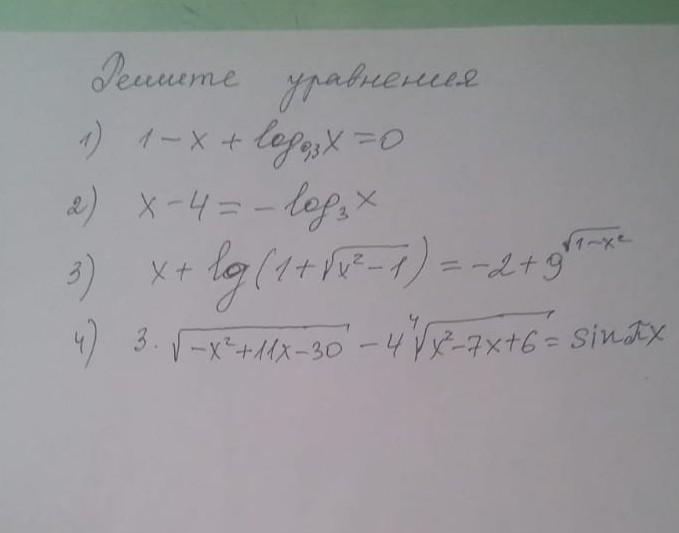 Решите уравнения
1) 1 - x + log₀,₃x = 0
2) x - 4 = - log₃x
3) x + lg(1 + √(x² - 1)) = -2 + 9^√(1 - x²)
4) 3 · √(-x² + 11x - 30) - 4 ⁴√(x² - 7x + 6) = sin πx